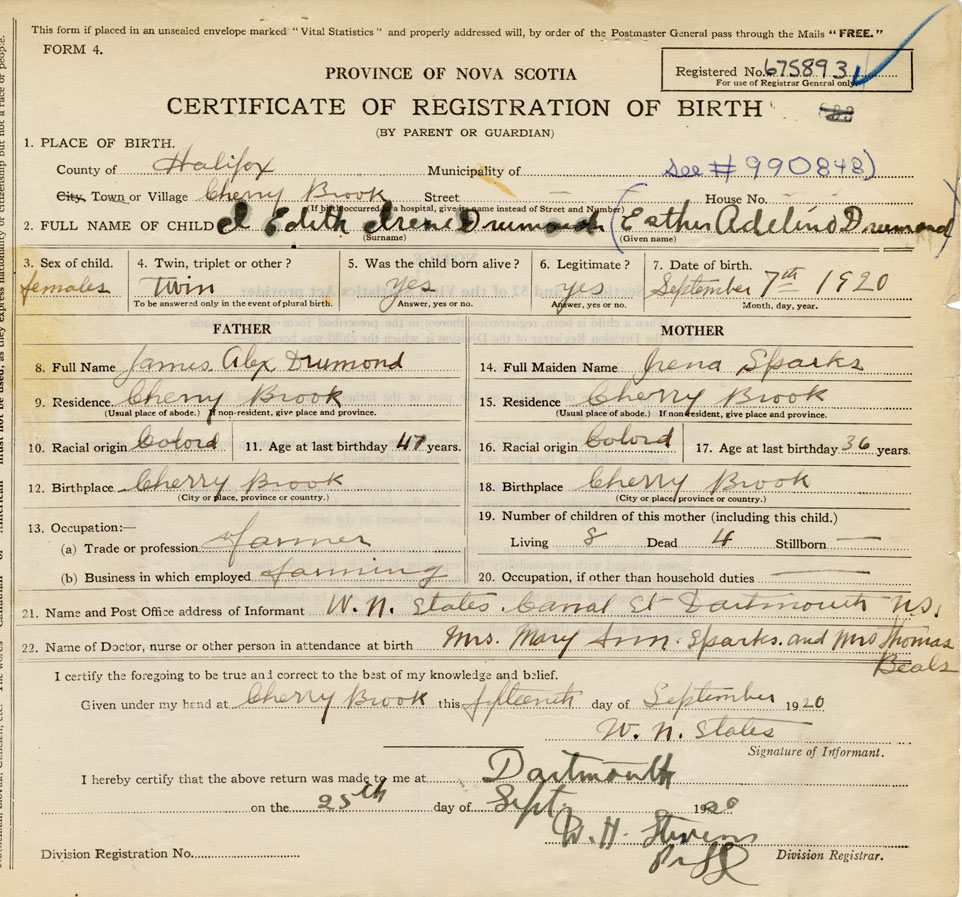 This form if placed in an unsealed envelope marked "Vital Statistics" and properly addressed will, by order of the Postmaster General pass through the Mails "FREE."
FORM 4.
Registered No. 675893
For use of Registrar General only.
PROVINCE OF NOVA SCOTIA
CERTIFICATE OF REGISTRATION OF BIRTH
(BY PARENT OR GUARDIAN)
1. PLACE OF BIRTH.
County of Halifox Municipality of see # 990848)
City, Town or Village Cherry Brook Street — House No. —
(If birth occurred in a hospital, give its name instead of Street and Number)
2. FULL NAME OF CHILD Edith Irene Drumond (Esther Adelino Drumond)
(Surname) (Given name)
3. Sex of child. 4. Twin, triplet or other? 5. Was the child born alive? 6. Legitimate? 7. Date of birth.
females Twin yes yes September 7th 1920
To be answered only in the event of plural birth. Answer, yes or no. Answer, yes or no. Month, day, year.
FATHER MOTHER
8. Full Name James Alex Drumond 14. Full Maiden Name Irena Sparks
9. Residence. Cherry Brook 15. Residence Cherry Brook
(Usual place of abode.) If non-resident, give place and province. (Usual place of abode.) If non-resident, give place and province.
10. Racial origin Colord 11. Age at last birthday 47 years. 16. Racial origin Colord 17. Age at last birthday 36 years.
12. Birthplace Cherry Brook 18. Birthplace Cherry Brook
(City or place, province or country.) (City or place, province or country.)
13. Occupation:— 19. Number of children of this mother (including this child.)
(a) Trade or profession farmer Living 8 Dead 4 Stillborn —
(b) Business in which employed farming 20. Occupation, if other than household duties —
21. Name and Post Office address of Informant W. N. States. Canal St Dartmouth N.S.
22. Name of Doctor, nurse or other person in attendance at birth Mrs. Mary Ann. Sparks. and Mrs Thomas
Beals
I certify the foregoing to be true and correct to the best of my knowledge and belief.
Given under my hand at Cherry Brook this fifteenth day of September 1920
W. N. States
Signature of Informant.
I hereby certify that the above return was made to me at Dartmouth
on the 25th day of Sept 1920
W. H. Stevens
Division Registration No. Division Registrar.